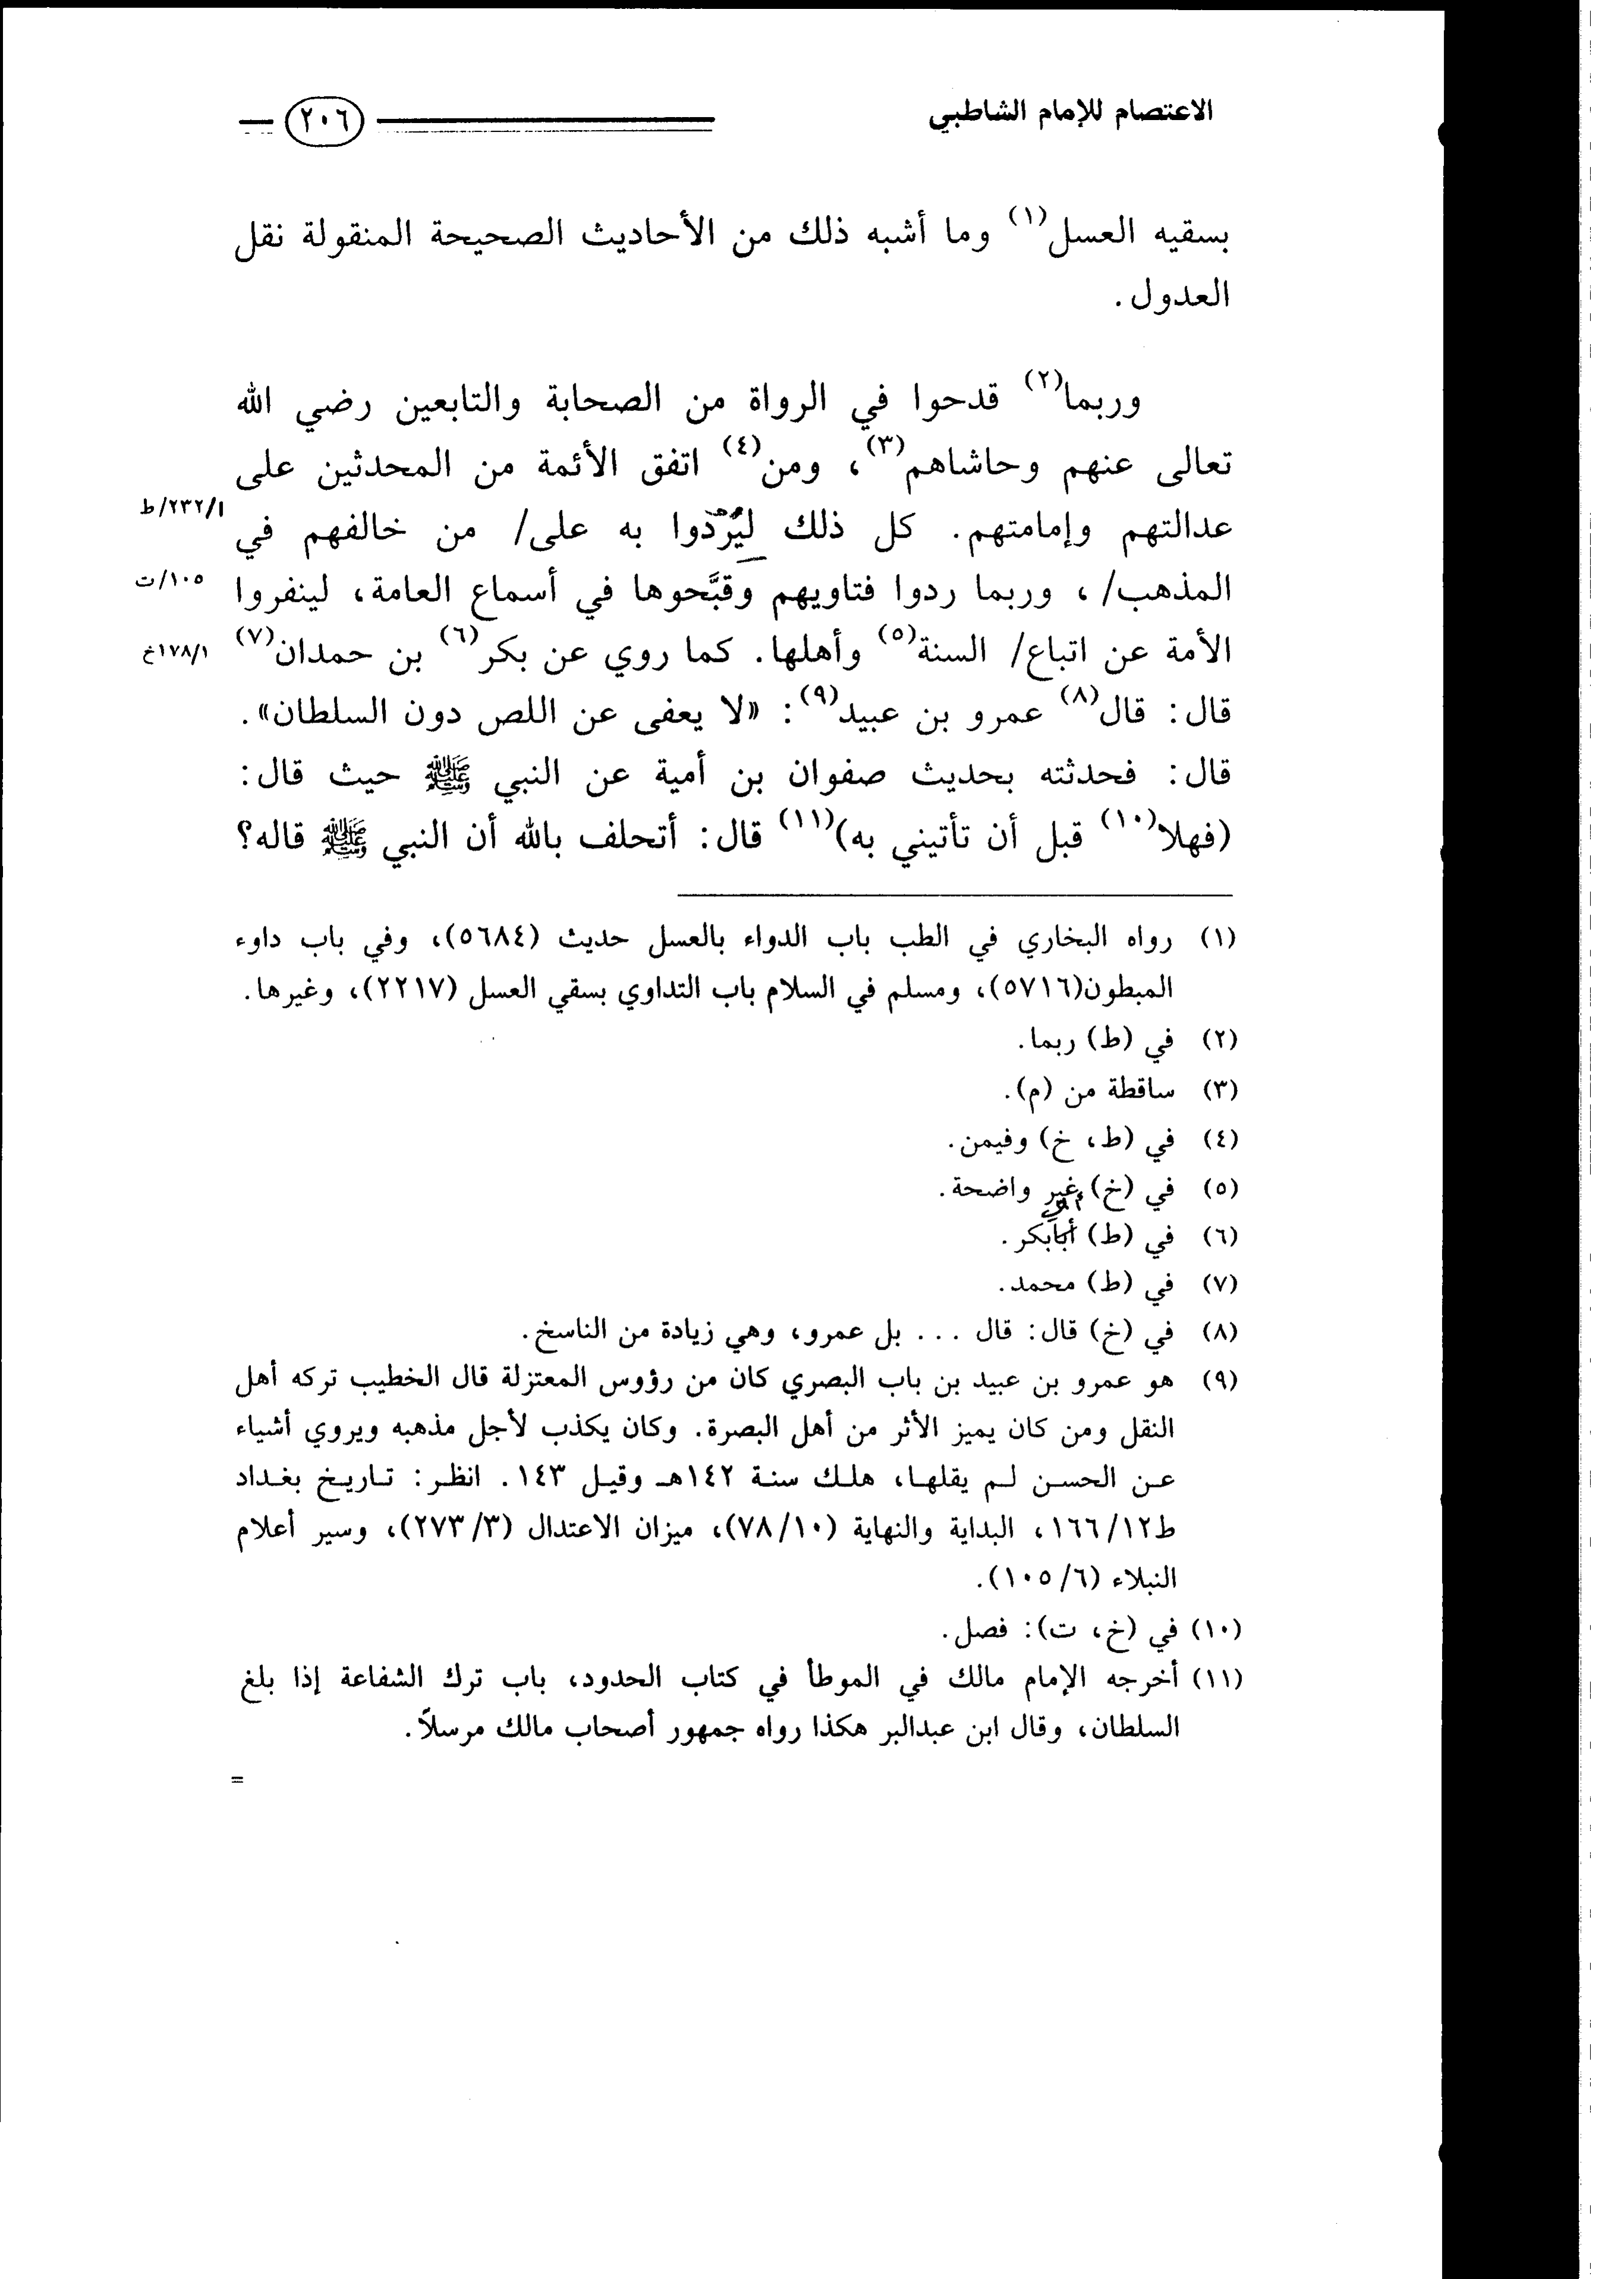 الاعتصام للإمام الشاطبي
٢٠٦
بسقيه العسل(١) وما أشبه ذلك من الأحاديث الصحيحة المنقولة نقل
العدول.
وربما(٢) قدحوا في الرواة من الصحابة والتابعين رضي الله
تعالى عنهم وحاشاهم(٣)، ومن(٤) اتفق الأئمة من المحدثين على
عدالتهم وإمامتهم. كل ذلك ليردوا به على/ من خالفهم في
١/٢٣٢/ط
المذهب/، وربما ردوا فتاويهم وقبَّحوها في أسماع العامة، لينفروا
١٠٥/ت
الأمة عن اتباع/ السنة(٥) وأهلها. كما روي عن بكر(٦) بن حمدان(٧)
١/١٧٨خ
قال: قال(٨) عمرو بن عبيد(٩): «لا يعفى عن اللص دون السلطان».
قال: فحدثته بحديث صفوان بن أمية عن النبي ﷺ حيث قال:
(فهلا(١٠) قبل أن تأتيني به)(١١) قال: أتحلف بالله أن النبي ﷺ قاله؟
(١) رواه البخاري في الطب باب الدواء بالعسل حديث (٥٦٨٤)، وفي باب داوء
المبطون(٥٧١٦)، ومسلم في السلام باب التداوي بسقي العسل (٢٢١٧)، وغيرها.
(٢) في (ط) ربما.
(٣) ساقطة من (م).
(٤) في (ط، خ) وفيمن.
(٥) في (خ) غير واضحة.
(٦) في (ط) أبابكر.
(٧) في (ط) محمد.
(٨) في (خ) قال: قال ... بل عمرو، وهي زيادة من الناسخ.
(٩) هو عمرو بن عبيد بن باب البصري كان من رؤوس المعتزلة قال الخطيب تركه أهل
النقل ومن كان يميز الأثر من أهل البصرة. وكان يكذب لأجل مذهبه ويروي أشياء
عن الحسن لم يقلها، هلك سنة ١٤٢هـ وقيل ١٤٣. انظر: تاريخ بغداد
ط١٦٦/١٢، البداية والنهاية (٧٨/١٠)، ميزان الاعتدال (٢٧٣/٣)، وسير أعلام
النبلاء (١٠٥/٦).
(١٠) في (خ، ت): فصل.
(١١) أخرجه الإمام مالك في الموطأ في كتاب الحدود، باب ترك الشفاعة إذا بلغ
السلطان، وقال ابن عبدالبر هكذا رواه جمهور أصحاب مالك مرسلاً.
=